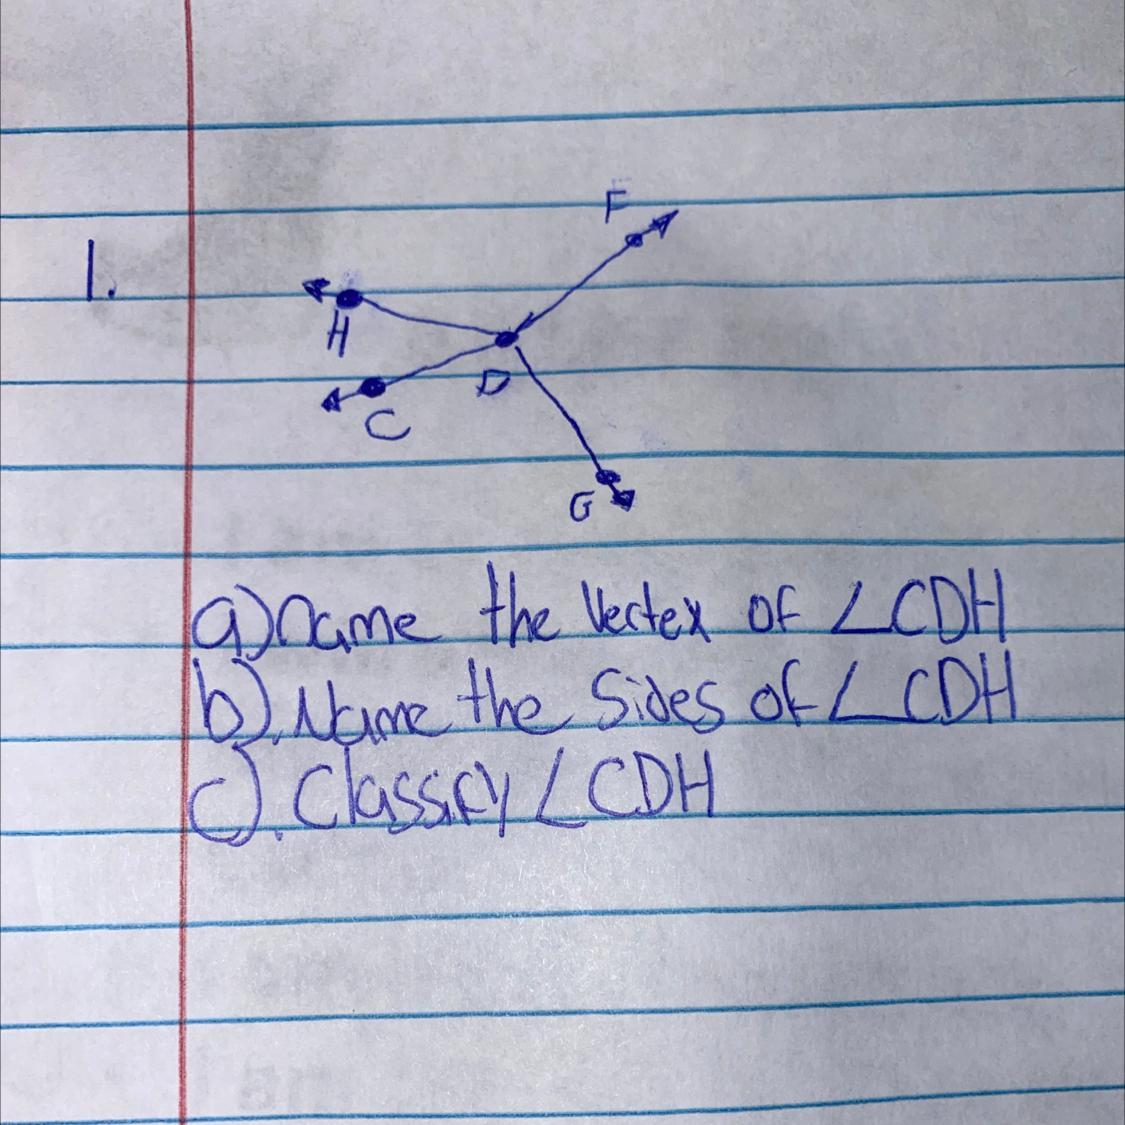 1.
F
H
D
C
G
a) name the vertex of ∠CDH
b). Name the Sides of ∠CDH
c). Classify ∠CDH